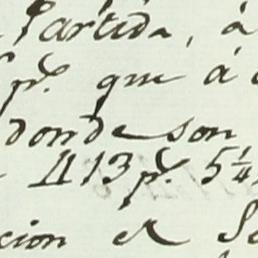 Partida, á
p.^s que á
donde son
1113 p.^s 5¼
cion el Se